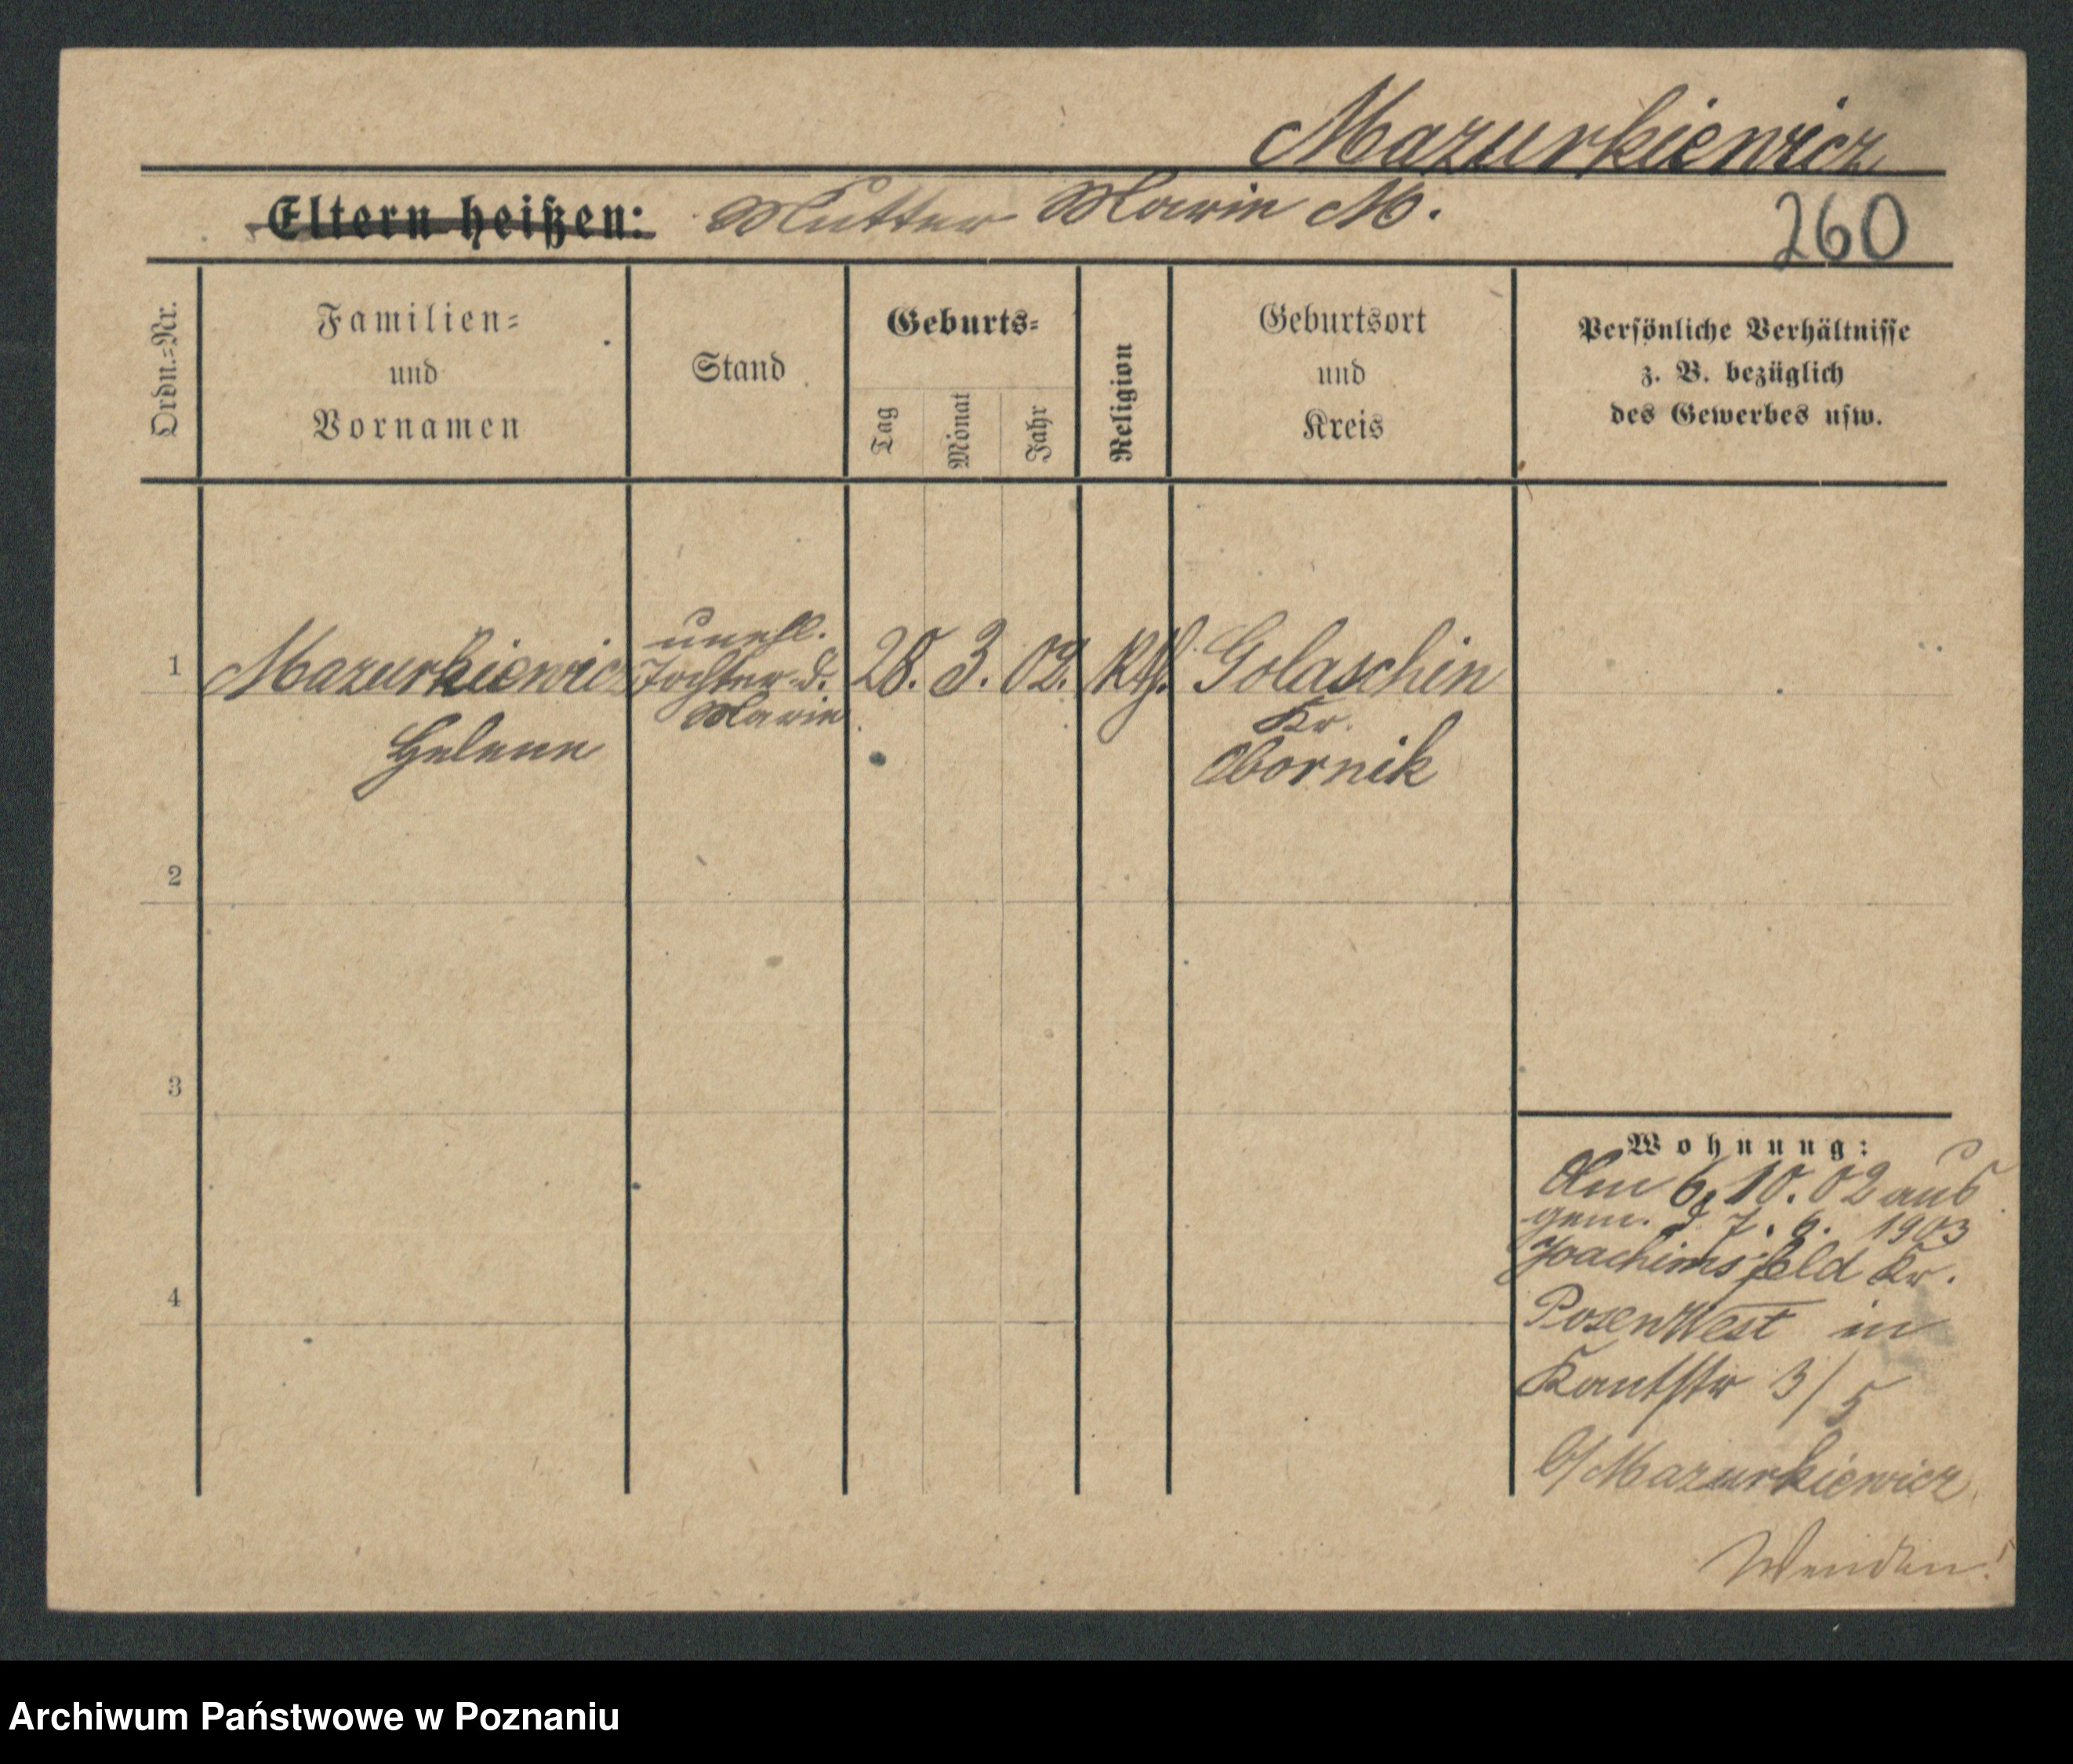 Mazurkiewicz
Eltern heißen: Mutter Marie M.
260
Ordn.=Nr.
Familien=
und
Vornamen
Stand
Geburts=
Tag
Monat
Jahr
Religion
Geburtsort
und
Kreis
Persönliche Verhältnisse
z. B. bezüglich
des Gewerbes usw.
1
Mazurkiewicz
Helene
unehl.
Tochter d.
Marie
28. 3. 02. Kth.
Golaschin
Kr.
Obornik
2
3
4
Wohnung:
Am 6.10.02 aus
gem. d 7. 6. 1903
Joachimsfeld Kr.
Posen West in
Kantstr 3/5
b/Mazurkiewicz
Wenden!
Archiwum Państwowe w Poznaniu